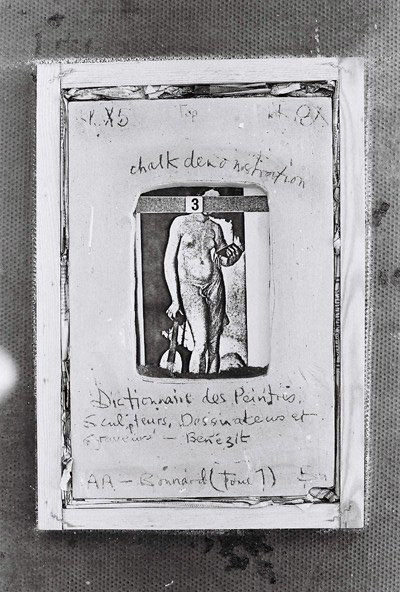 Top
chalk demonstration
3
Dictionnaire des Peintres,
Sculpteurs, Dessinateurs et
Graveurs - Benezit
AA - Bonnard (Tome 1)